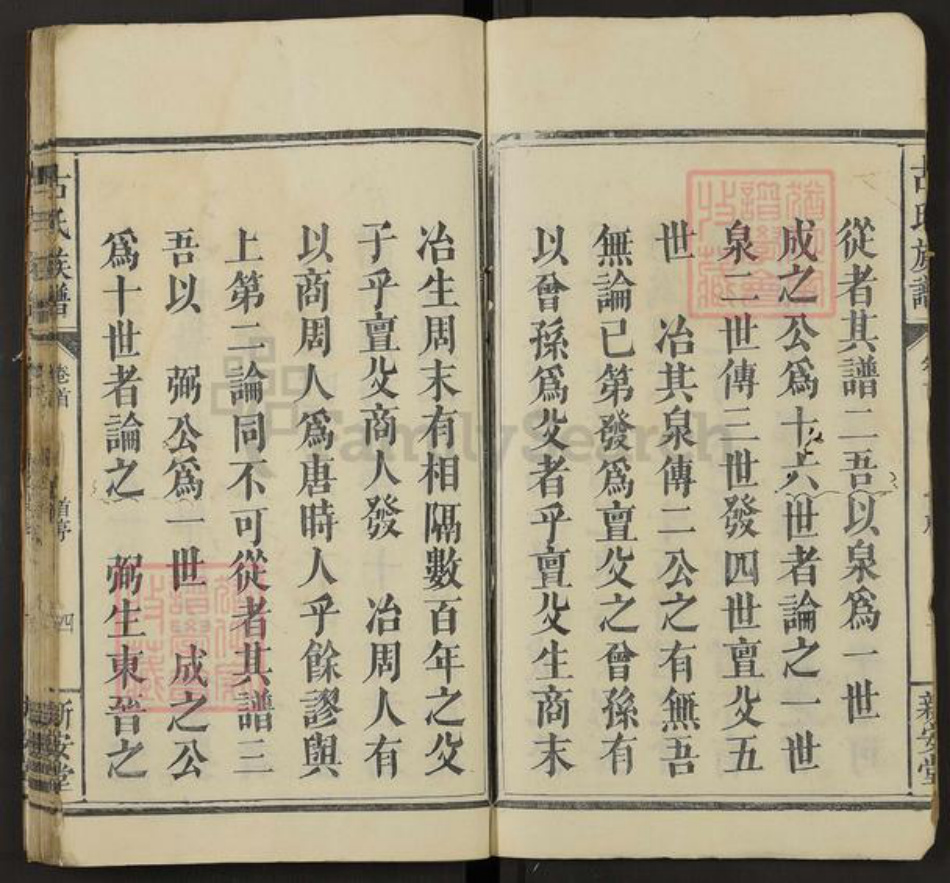 從者其譜二吾以泉為一世
成之公為十六世者論之一世
泉二世傳三世發四世亶父五
世　冶其泉傳二公之有無吾
無論已第發為亶父之曾孫有
以曾孫為父者乎亶父生商末
冶生周末有相隔數百年之父
子乎亶父商人發　冶周人有
以商周人為唐時人乎餘謬與
上第二論同不可從者其譜三
吾以　弼公為一世　成之公
為十世者論之　弼生東晉之
古氏族譜
卷首
首序
四
新安堂
古氏族譜
新安堂
FamilySearch